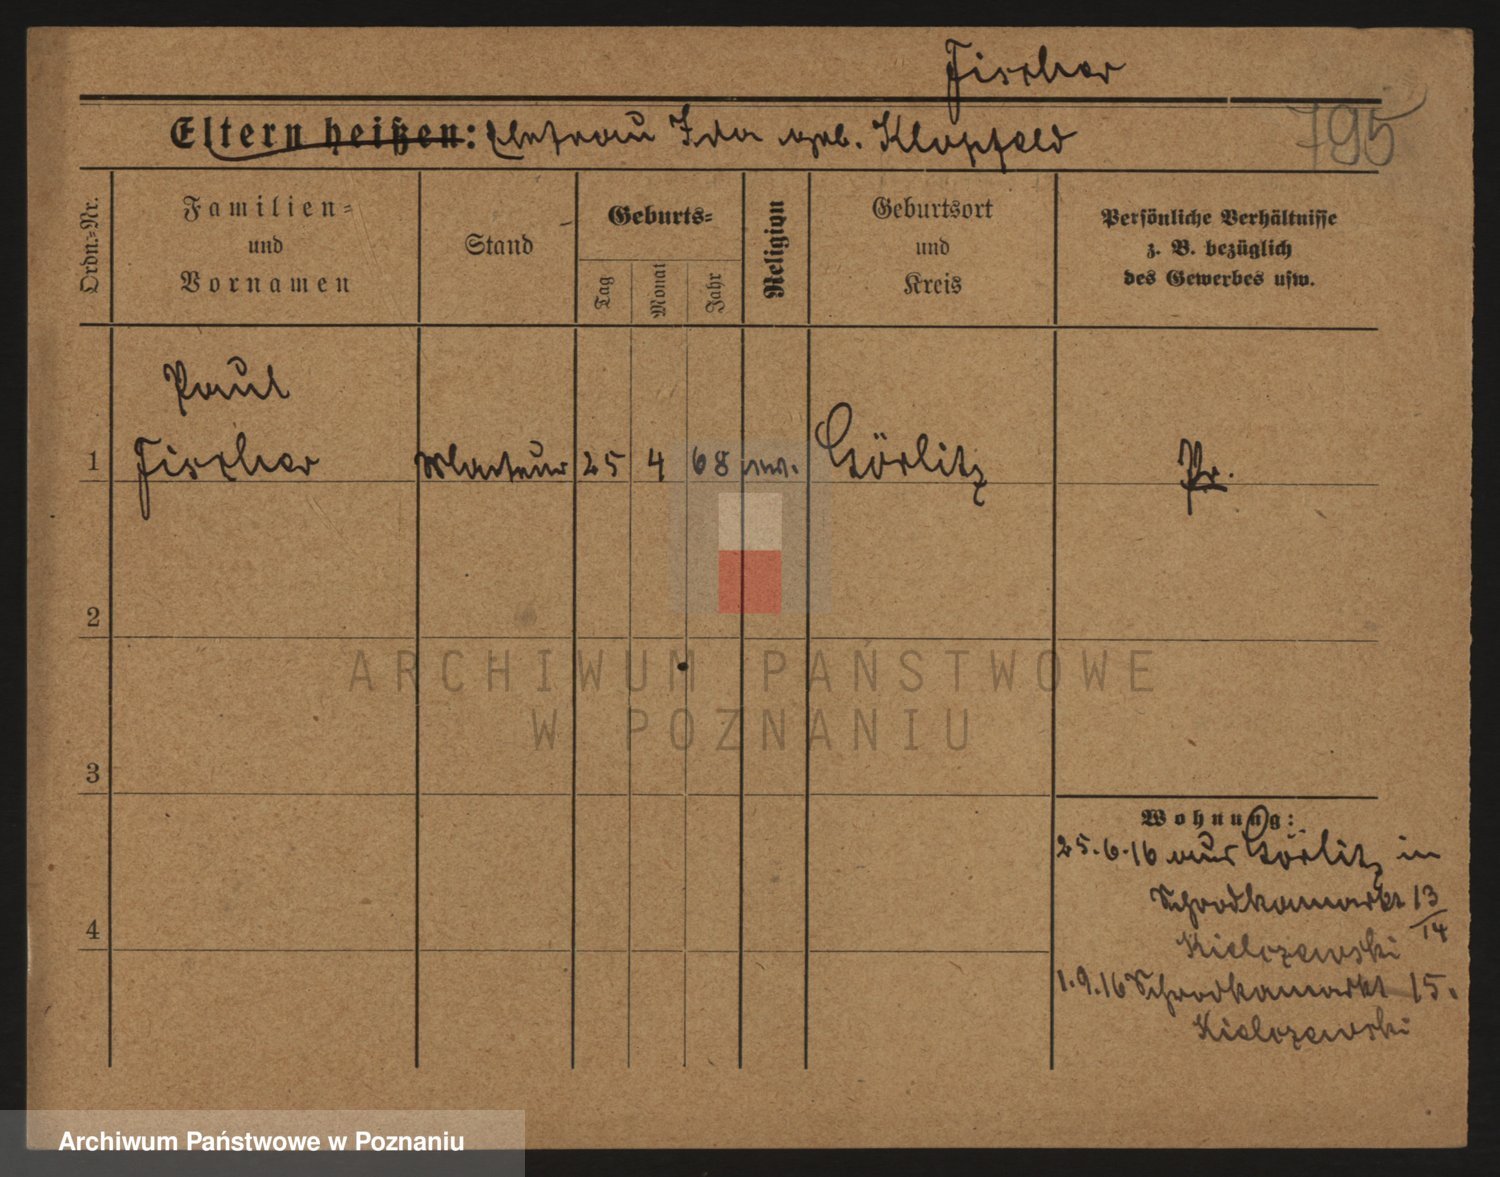 Fischer
Eltern heißen: Ehefrau Ida geb. Klopfeld
795
Ordn.-Nr.
Familien-
und
Vornamen
Stand
Geburts-
Tag
Monat
Jahr
Religion
Geburtsort
und
Kreis
Persönliche Verhältnisse
z. B. bezüglich
des Gewerbes usw.
Paul
1 Fischer 25 4 68 ev. Görlitz Pr.
2
3
4
Wohnung:
25.6.16 aus Görlitz in
Schrodkamarkt 13/14
Kielczewski
1.9.16 Schrodkamarkt 15.
Kielczewski
ARCHIWUM PAŃSTWOWE
W POZNANIU
Archiwum Państwowe w Poznaniu